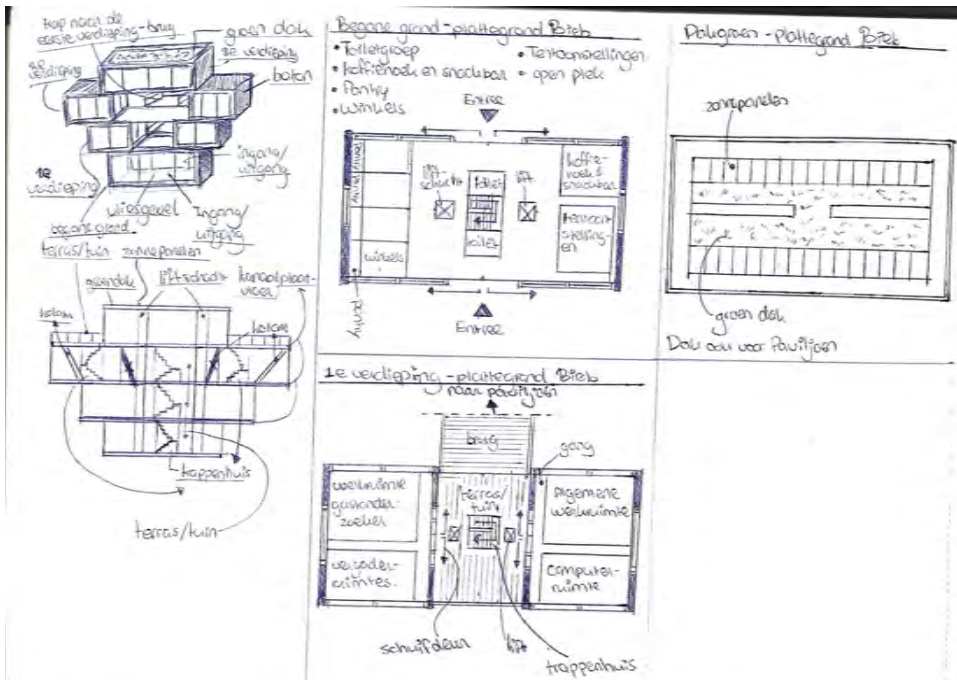 trap naar de
eerste verdieping-brug
groen dak
2e verdieping
2e
verdieping
beton
ingang/
uitgang
1e
verdieping
vliesgevel
Ingang/
uitgang
begane grond
terras/tuin
zonnepanelen
groendak
liftschacht
kanaalplaat-
vloer
kolom
kolom
trappenhuis
terras/tuin
Begane grond - plattegrond Bieb
• Toiletgroep
• koffiehoek en snackbar
• Pantry
• winkels
• Tentoonstellingen
• open plek
Entree
Pantry
lift-
schacht
toilet
lift
koffie-
hoek &
snackbar
toilet
tentoon-
stelling-
en
winkels
Pantry
Entree
1e verdieping - plattegrond Bieb
naar paviljoen
brug
gang
werkruimte
gastonder-
zoekers
terras/
tuin
algemene
werkruimte
vergader-
ruimtes.
computer-
ruimte
schuifdeur
lift
trappenhuis
Dakgroen - plattegrond Bieb
zonnepanelen
groen dak
Dak ook voor Paviljoen